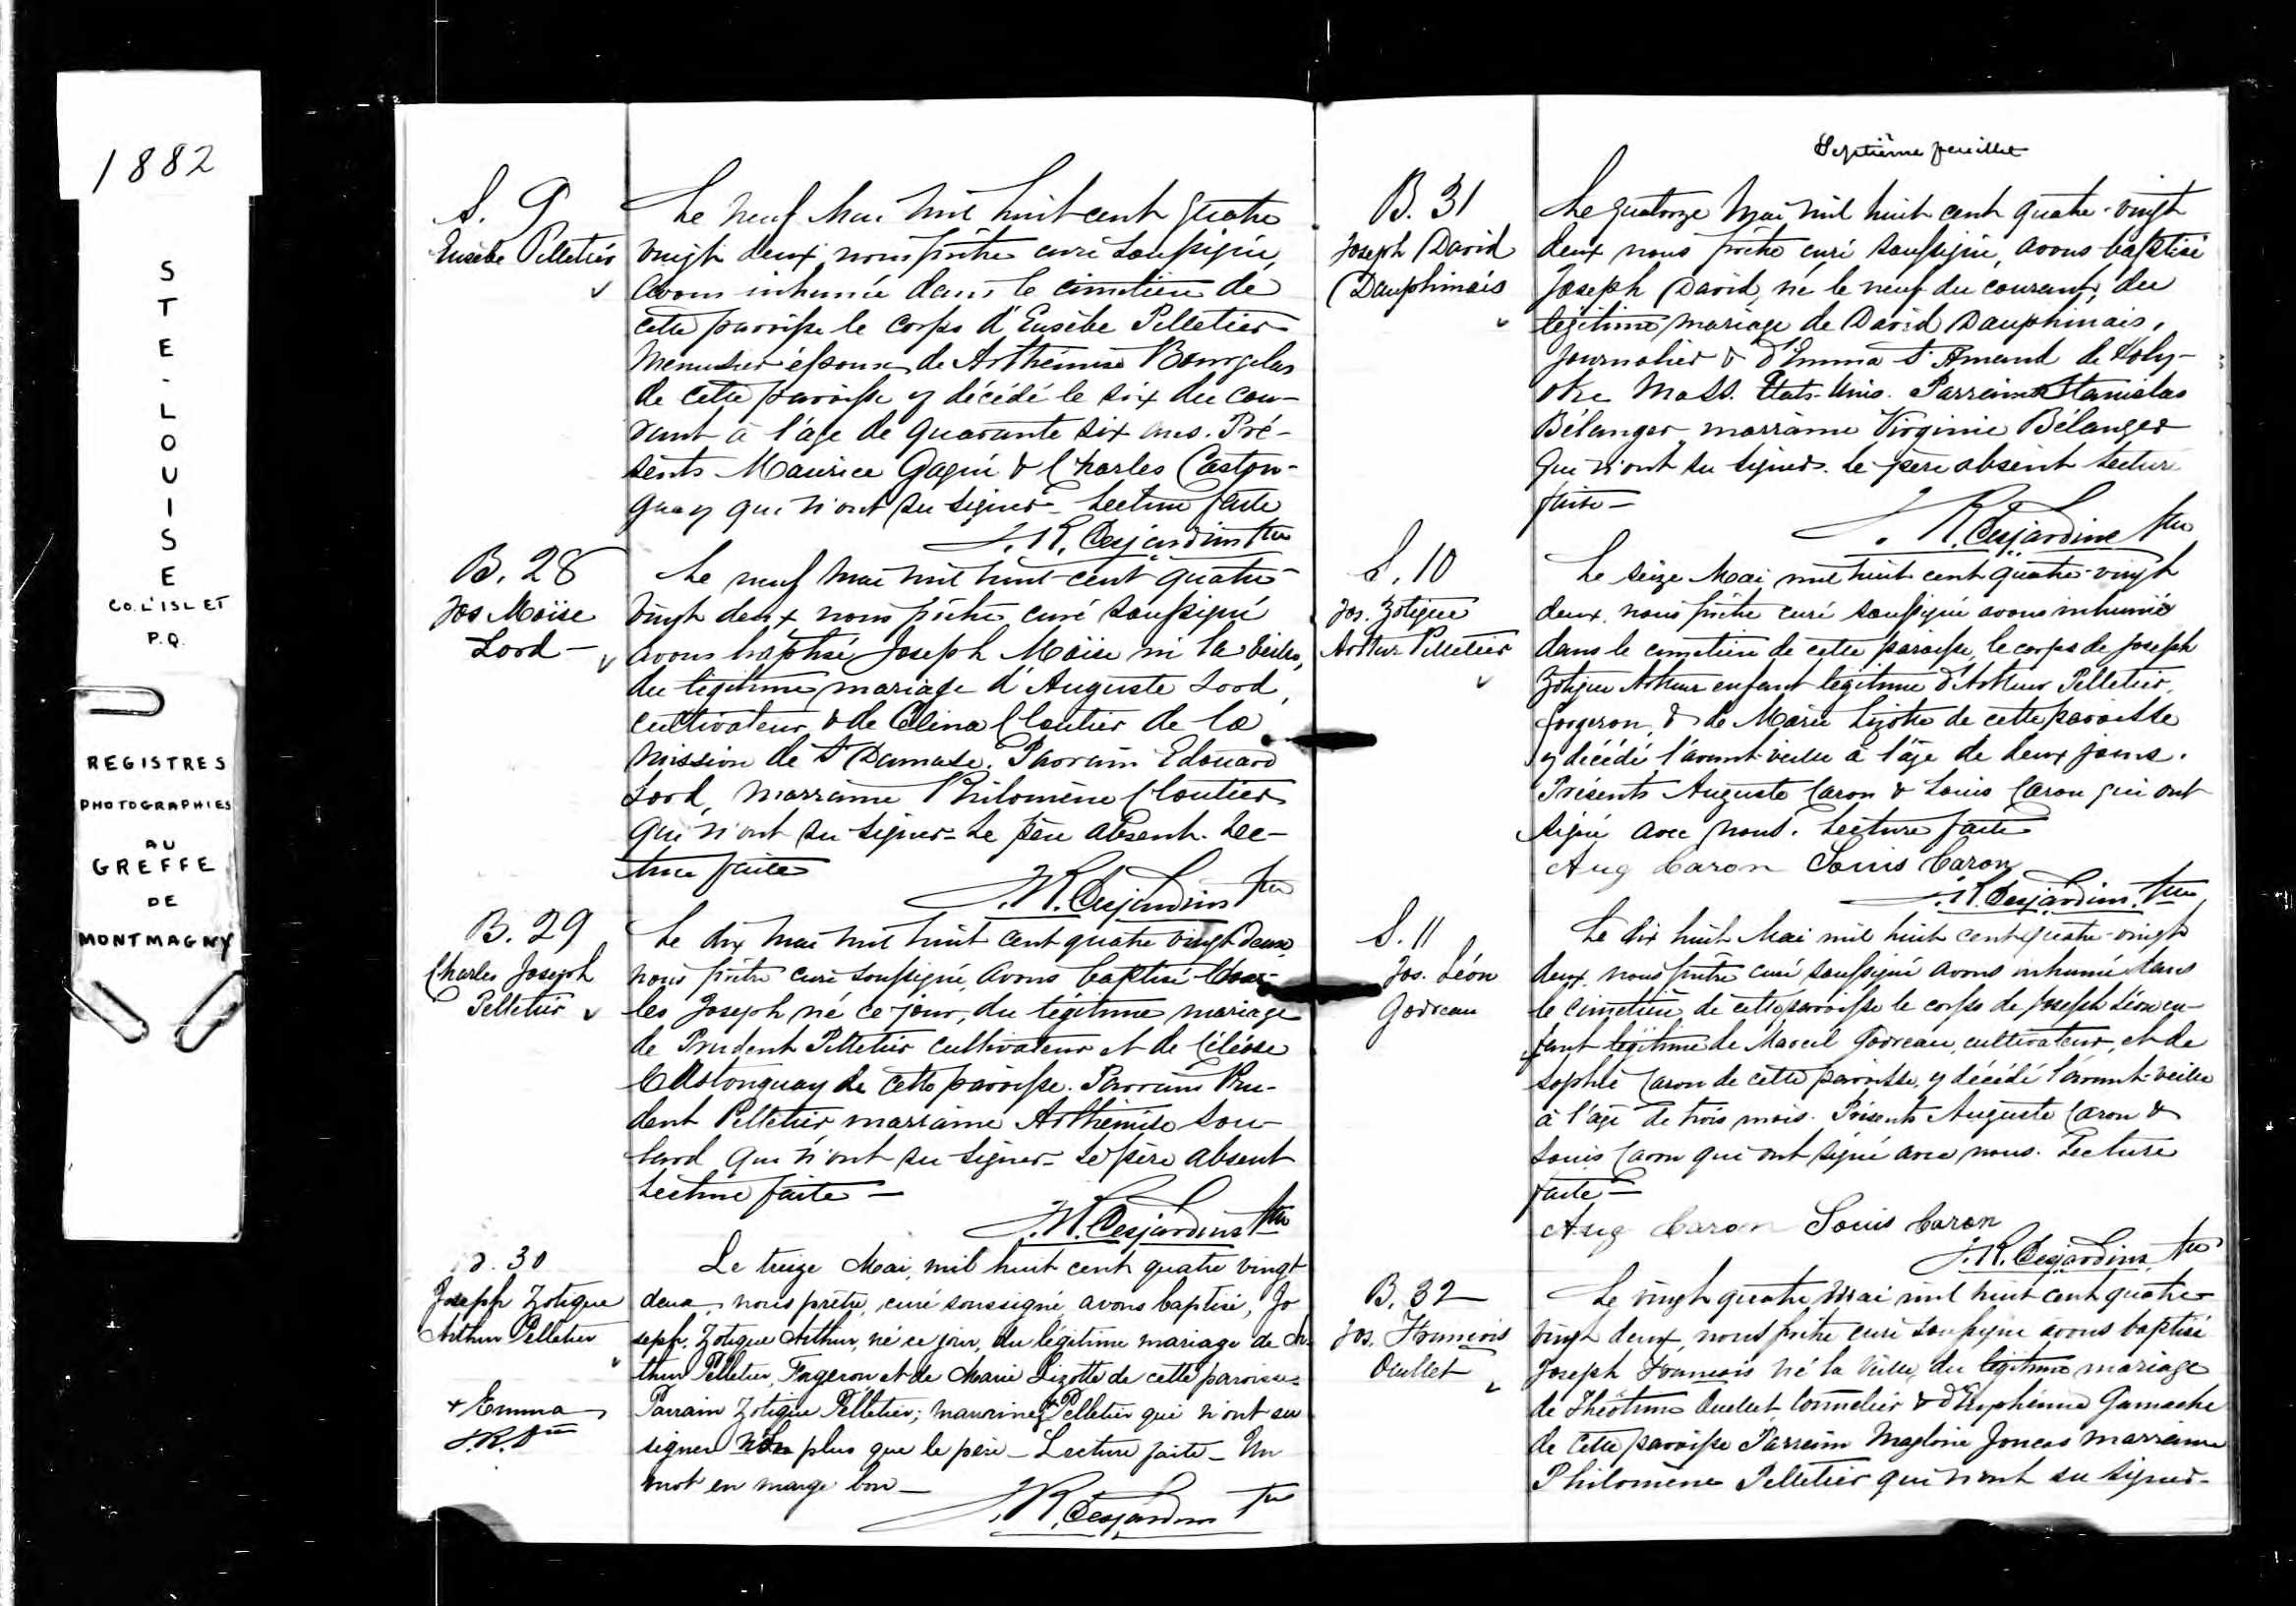 1882
STE-LOUISE
CO. L'ISLET
P.Q.
REGISTRES
PHOTOGRAPHIES
AU
GREFFE
DE
MONTMAGNY
S. 9
Eusèbe Pelletier
Le neuf Mai mil huit cent quatre
vingt deux nous prêtre curé soussigné,
avons inhumé dans le cimetière de
cette paroisse le corps d'Eusèbe Pelletier
Menuisier époux de Arthémise Bourgelas
de cette paroisse y décédé le six du cou-
rant à l'âge de quarante six ans. Pré-
sents Maurice Gagné & Charles Caston-
guay qui n'ont su signer. Lecture faite
J. R. Desjardins Ptre
B. 28
Jos Moïse
Lord
Le neuf mai mil huit cent quatre
vingt deux nous prêtre curé soussigné
avons baptisé Joseph Moïse né la veille,
du légitime mariage d'Auguste Lord,
cultivateur & de Célina Cloutier de la
mission de St Damase. Parrain Edouard
Lord, marraine Philomène Cloutier
qui n'ont su signer. Le père absent. Lec-
ture faite
J. R. Desjardins Ptre
B. 29
Charles Joseph
Pelletier
Le dix mai mil huit cent quatre vingt deux
nous prêtre curé soussigné, avons baptisé Char-
les Joseph né ce jour, du légitime mariage
de Prudent Pelletier cultivateur et de
Castonguay de cette paroisse. Parrain Pru-
dent Pelletier marraine Arthémise Sou-
lard qui n'ont su signer. Le père absent
Lecture faite —
J. R. Desjardins Ptre
B. 30
Joseph Zotique
Arthur Pelletier
+ Emma
J. R. D Ptre
Le treize Mai, mil huit cent quatre vingt
deux, nous prêtre, curé soussigné, avons baptisé, Jo
seph, Zotique Arthur, né ce jour, du légitime mariage de Ar
thur Pelletier, Forgeron et de Marie Lizotte de cette paroisse.
Parrain Zotique Pelletier; marraine + Pelletier qui n'ont su
signer non plus que le père — Lecture faite — Un
mot en marge bon —
J. R. Desjardins Ptre
Septième feuillet
B. 31
Joseph David
Dauphinais
Le quatorze Mai mil huit cent quatre-vingt
deux nous prêtre curé soussigné, avons baptisé
Joseph David, né le neuf du courant, du
légitime mariage de David Dauphinais,
journalier & d'Emma St Amand de Holy-
oke Mass. Etats-Unis. Parrain Stanislas
Bélanger marraine Virginie Bélanger
qui n'ont su signer. Le père absent Lecture
faite —
J. R. Desjardins Ptre
S. 10
Jos. Zotique
Arthur Pelletier
Le seize Mai mil huit cent quatre-vingt
deux, nous prêtre curé soussigné avons inhumé
dans le cimetière de cette paroisse, le corps de Joseph
Zotique Arthur enfant légitime d'Arthur Pelletier,
forgeron, & de Marie Lizotte de cette paroisse
y décédé l'avant-veille à l'âge de deux jours.
Présents Auguste Caron & Louis Caron qui ont
signé avec nous. Lecture faite
Aug Caron Louis Caron
J. R. Desjardins Ptre
S. 11
Jos. Léon
Godreau
Le dix huit Mai mil huit cent quatre-vingt
deux, nous prêtre curé soussigné avons inhumé dans
le cimetière de cette paroisse le corps de Joseph Léon en-
fant légitime de Marcel Godreau, cultivateur, et de
Sophie Caron de cette paroisse, y décédé l'avant-veille
à l'âge de trois mois. Présents Auguste Caron &
Louis Caron qui ont signé avec nous. Lecture
faite —
Aug Caron Louis Caron
J. R. Desjardins Ptre
B. 32
Jos. François
Ouellet
Le vingt quatre Mai mil huit cent quatre-
vingt deux, nous prêtre curé soussigné avons baptisé
Joseph François né la veille, du légitime mariage
de Théotime Ouellet, tonnelier & d'Euphémie Gamache
de cette paroisse Parrain Magloire Joncas marraine
Philomène Pelletier qui n'ont su signer.